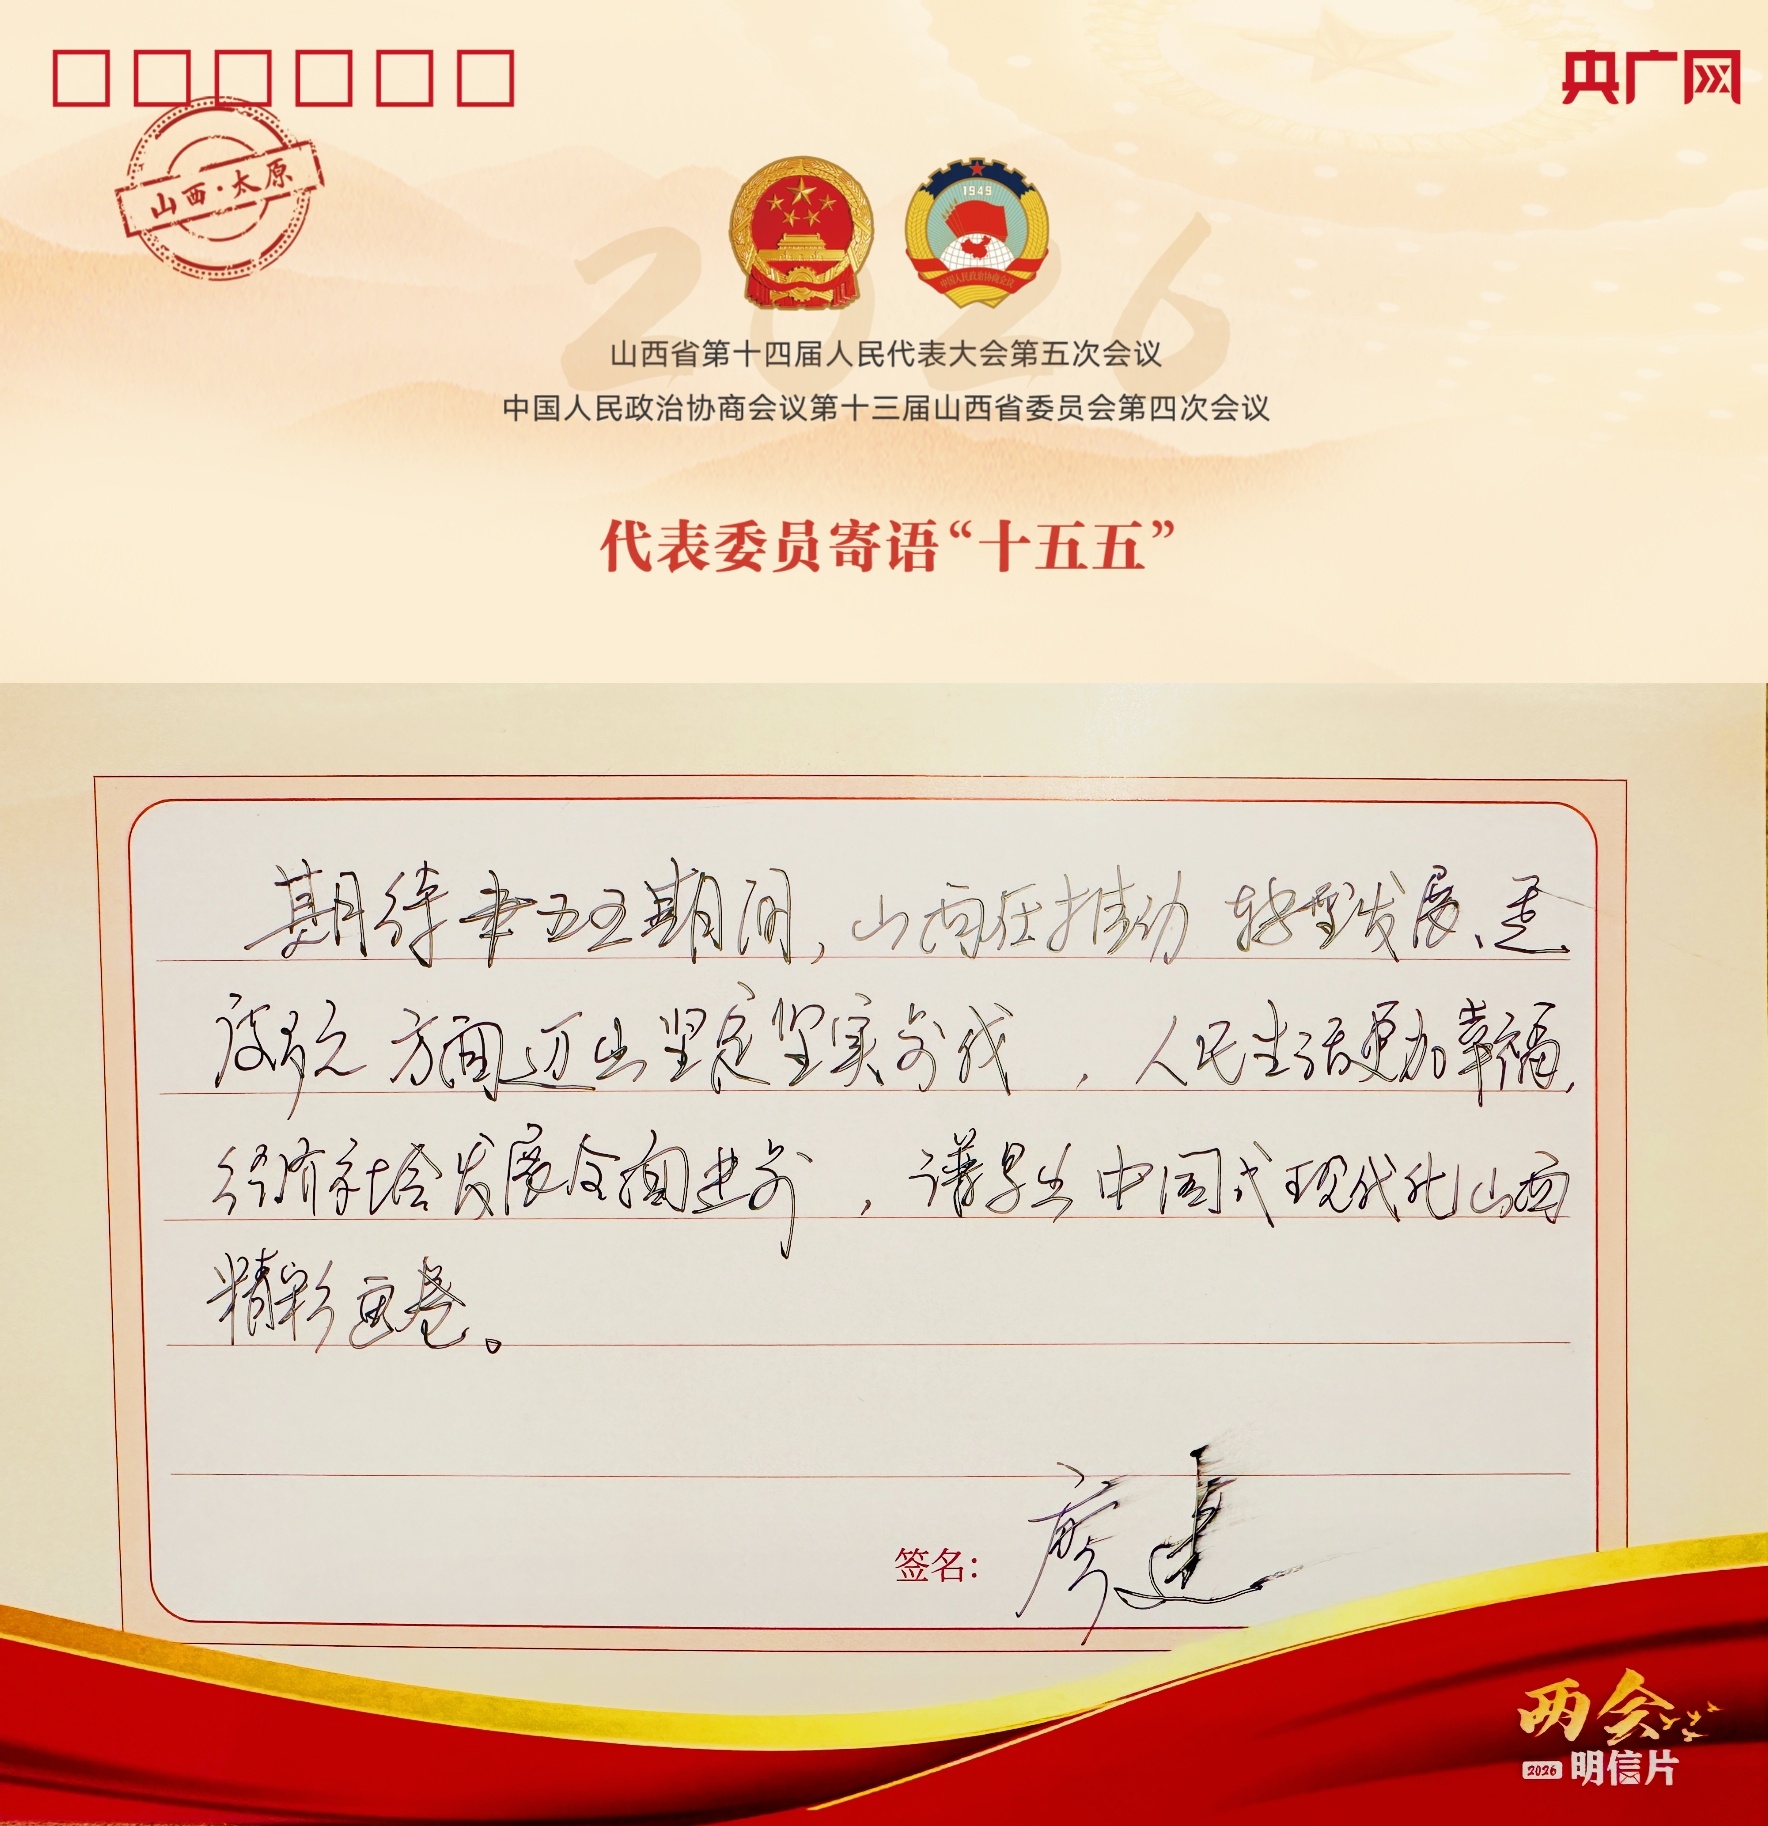 央广网
山西·太原
2026
1949
中国人民政治协商会议
山西省第十四届人民代表大会第五次会议
中国人民政治协商会议第十三届山西省委员会第四次会议
代表委员寄语“十五五”
期待十五五期间，山西在推动转型发展、
方面迈出坚定坚实步伐，人民生活更加幸福，
经济社会发展全面进步，谱写出中国式现代化山西
精彩画卷。
签名：
廖建
两会
2026 明信片